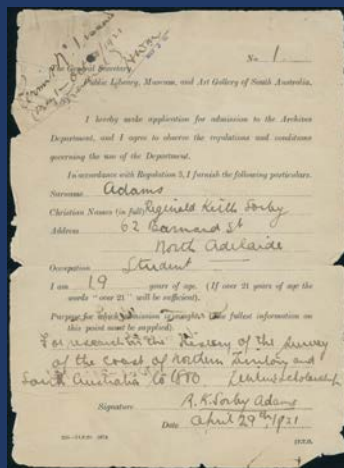 Permit No 1 issued
The General Secretary, No 1
Public Library, Museum, and Art Gallery of South Australia.
I hereby make application for admission to the Archives
Department, and I agree to observe the regulations and conditions
governing the use of the Department.
In accordance with Regulation 3, I furnish the following particulars.
Surname Adams
Christian Names (in full) Reginald Keith Sorby
Address 62 Barnard St
North Adelaide
Occupation Student
I am 19 years of age. (If over 21 years of age the
words "over 21" will be sufficient).
Purpose for which admission is sought. (The fullest information on
this point must be supplied).
For research in the History of the survey
of the coast of Northern Territory and
South Australia to 1880 Tinline scholarship
Signature R. K. Sorby Adams
Date April 29th/1921